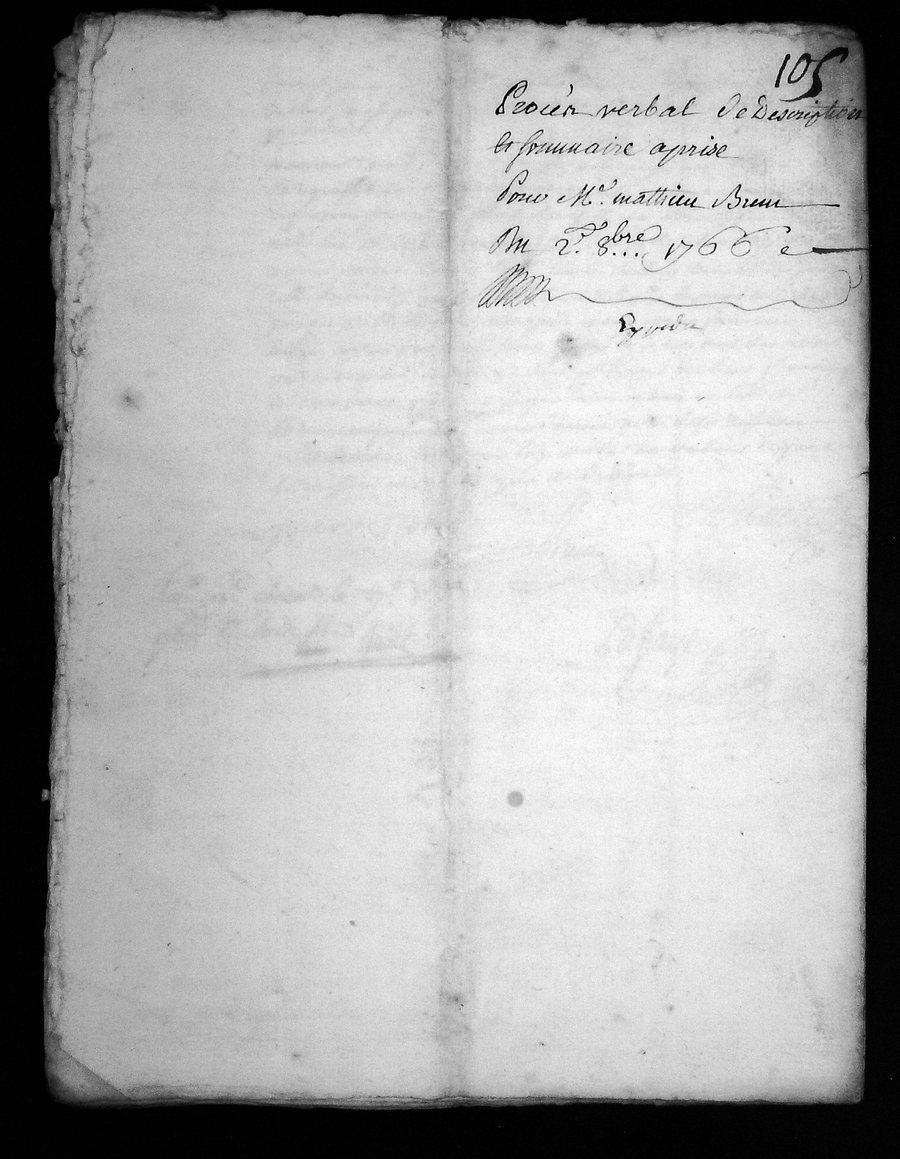 105
Procès verbal de Description
et sommaire aprise
Pour Mr. mathieu Brun
Du 2e. 8bre... 1766
Expedié